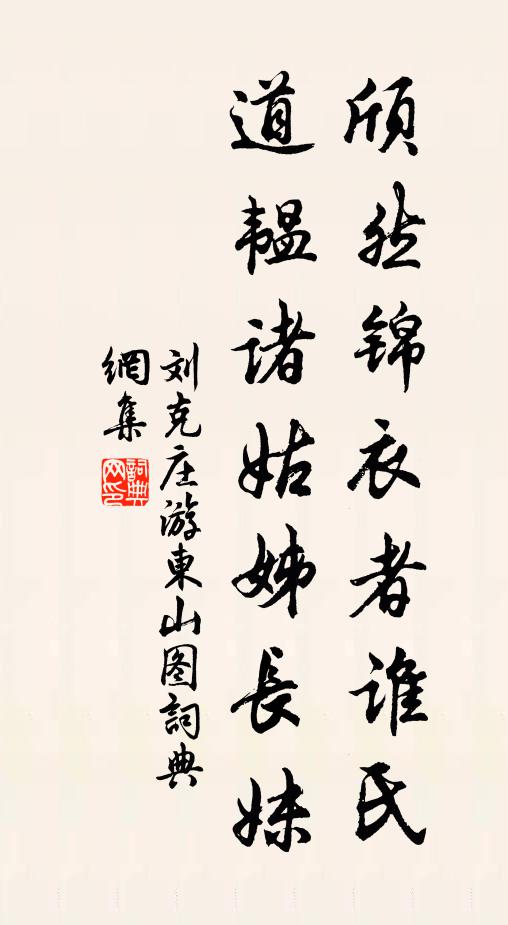 頎然锦衣者谁氏
道韫诸姑姊長妹
刘克庄游東山图詞典
網集
詞典
网印